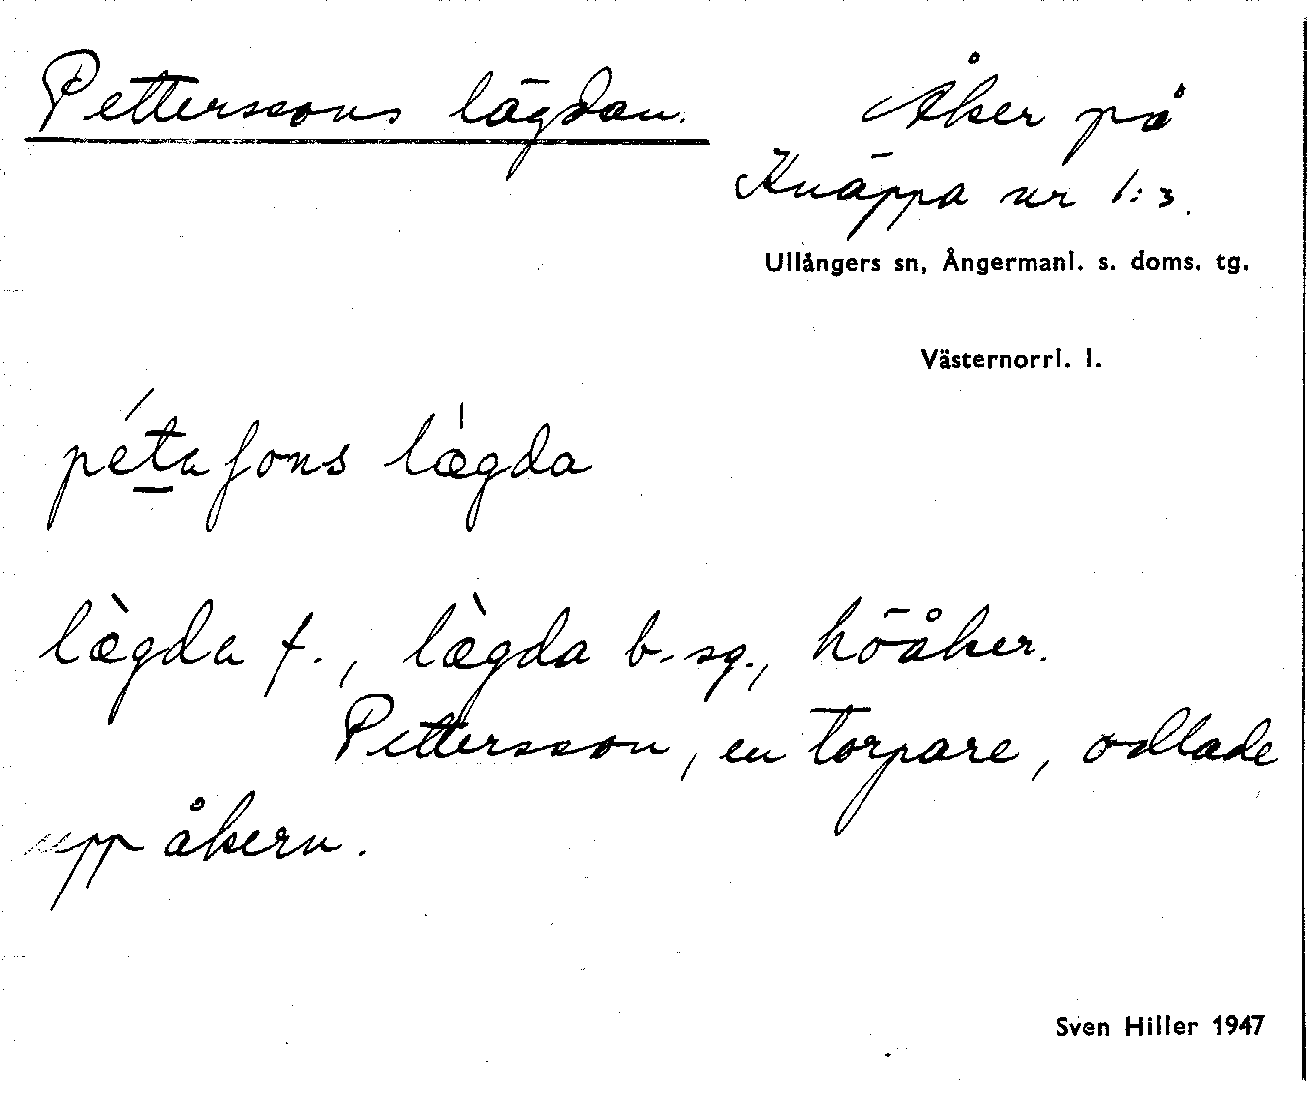 Petterssons lägdan.
Åker på
Knäppa nr 1:3.
Ullångers sn, Ångermanl. s. doms. tg.
Västernorrl. l.
pétaʃons lægda
lægda f., lægda b. sg., höåker.
Pettersson, en torpare, odlade
upp åkern.
Sven Hiller 1947